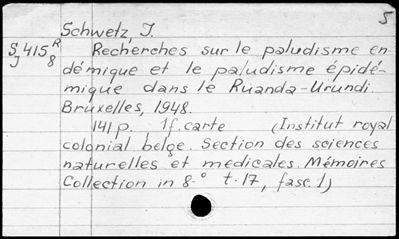 5
Schwetz, J.
S 415 R Recherches sur le paludisme en-
J 8 démique et le paludisme épidé-
mique dans le Ruanda-Urundi.
Bruxelles, 1948.
141 p. 1 f. carte (Institut royal
colonial belge. Section des sciences
naturelles et medicales. Mémoires
Collection in 8.° t. 17, fasc. 1)